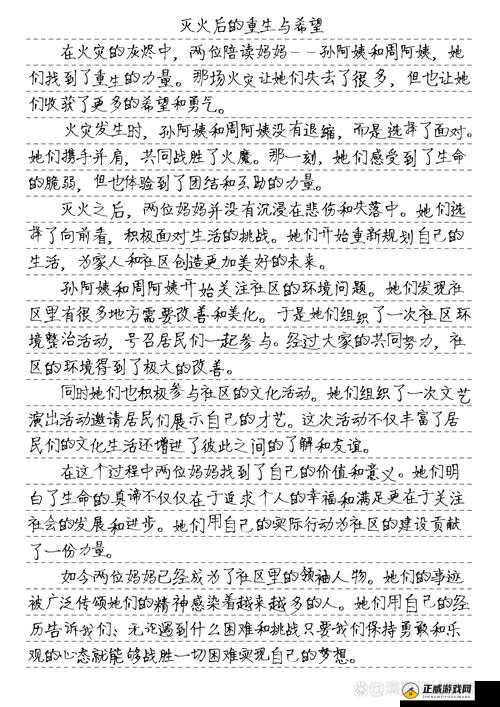 灭火后的重生与希望
在火灾的灰烬中，两位陪读妈妈--孙阿姨和周阿姨，她
们找到了重生的力量。那场火灾让她们失去了很多，但也让她
们收获了更多的希望和勇气。
火灾发生时，孙阿姨和周阿姨没有退缩，而是选择了面对。
她们携手并肩，共同战胜了火魔。那一刻，她们感受到了生命
的脆弱，但也体验到了团结和互助的力量。
灭火之后，两位妈妈并没有沉浸在悲伤和失落中。她们选
择了向前看，积极面对生活的挑战。她们开始重新规划自己的
生活，为家人和社区创造更加美好的未来。
孙阿姨和周阿姨开始关注社区的环境问题。她们发现社
区里有很多地方需要改善和美化。于是她们组织了一次社区环
境整治活动，号召居民们一起参与。经过大家的共同努力，社
区的环境得到了极大的改善。
同时她们也积极参与社区的文化活动。她们组织了一次文艺
演出活动邀请居民们展示自己的才艺。这次活动不仅丰富了居
民们的文化生活还增进了彼此之间的了解和友谊。
在这个过程中两位妈妈找到了自己的价值和意义。她们明
白了生命的真谛不仅仅在于追求个人的幸福和满足更在于关注
社会的发展和进步。她们用自己的实际行动为社区的建设贡献
了一份力量。
如今两位妈妈已经成为了社区里的领袖人物。她们的事迹
被广泛传颂她们的精神感染着越来越多的人。她们用自己的经
历告诉我们：无论遇到什么困难和挑战只要我们保持勇敢和乐
观的心态就能够战胜一切困难实现自己的梦想。
正威游戏网